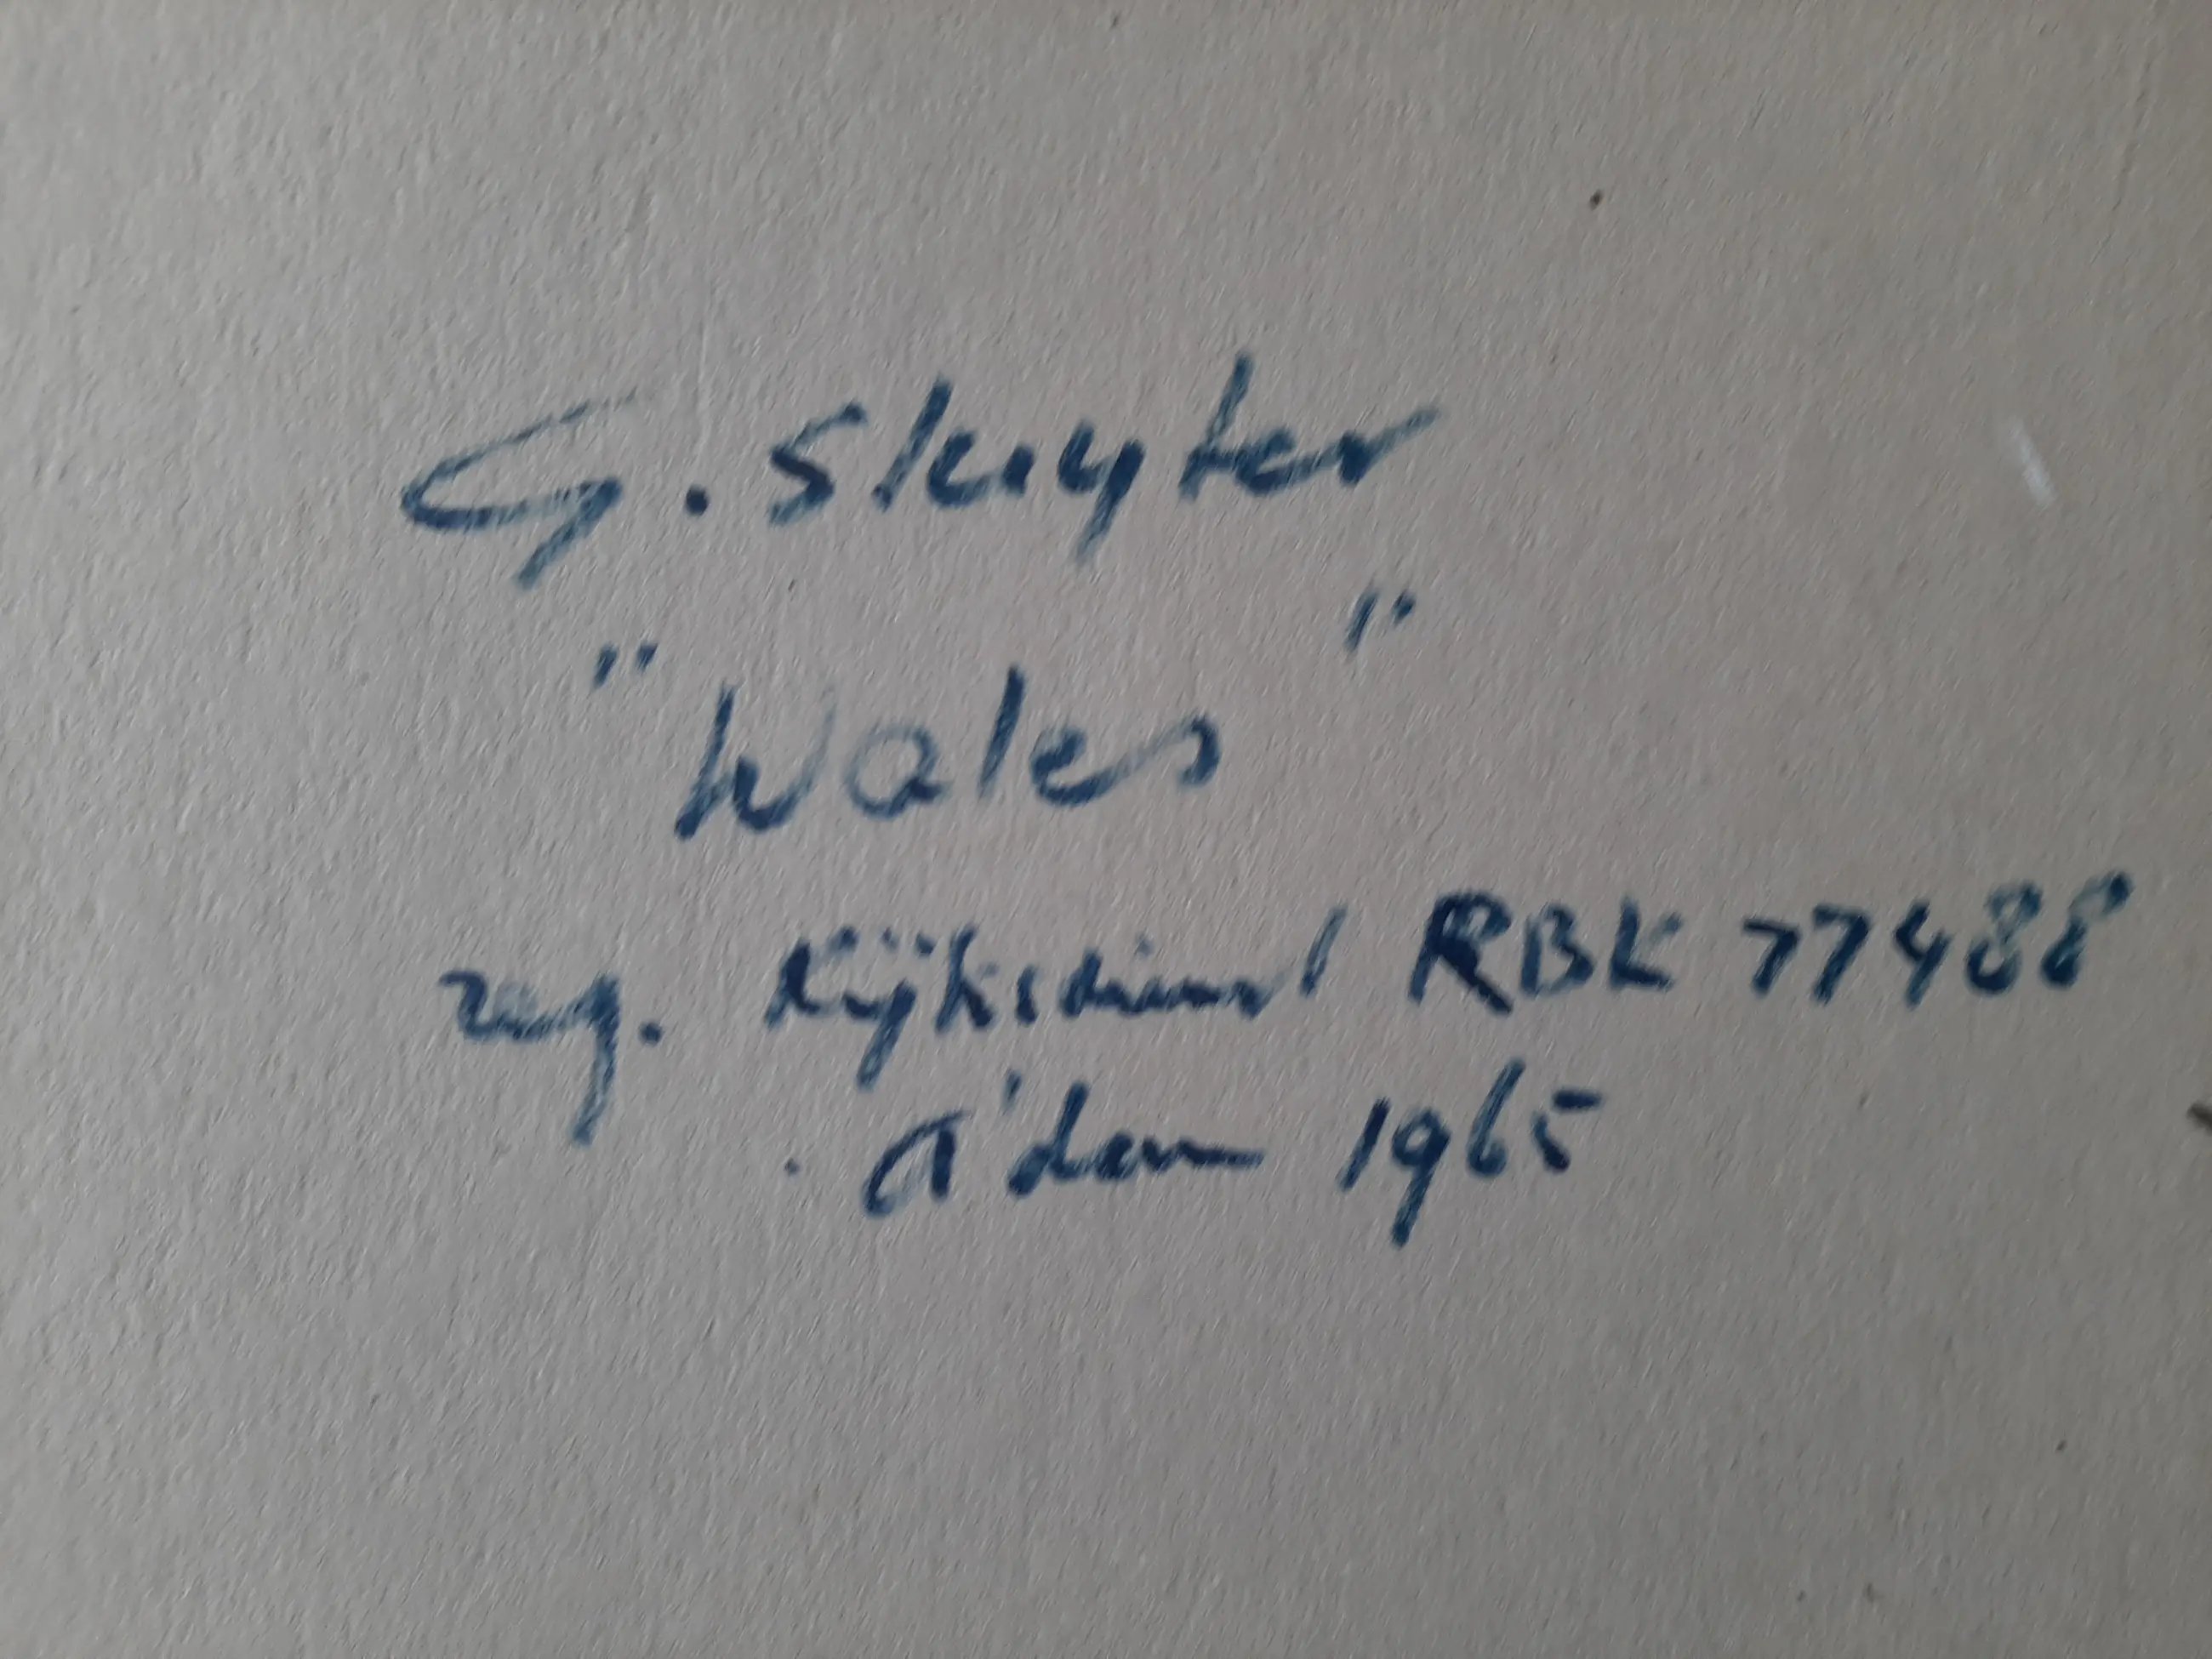 G. Sluyter
"Wales"
reg. Rijksdienst RBK 77488
A'dam 1965